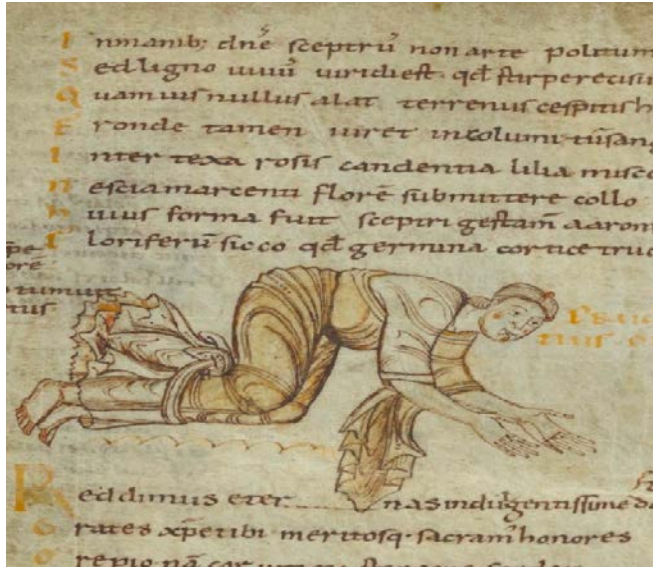 I nmanib; dnē sceptrū non arte politum
S ed ligno uiuū uiridi est qđ stirpe recisu
Q uamuis nullus alat terrenus cespitis h
F ronde tamen uiret incolumi tū sang
I nter texa rosis candentia lilia misce
N escia marcenti florē submittere collo
H uius forma fuit sceptri gestam̄ aaron
F loriferū sicco qđ germina cortice trud
R eddimus eter nas indulgentissime do
G rates xp̄e tibi meritosq; sacram' honores
O re pio nā cor